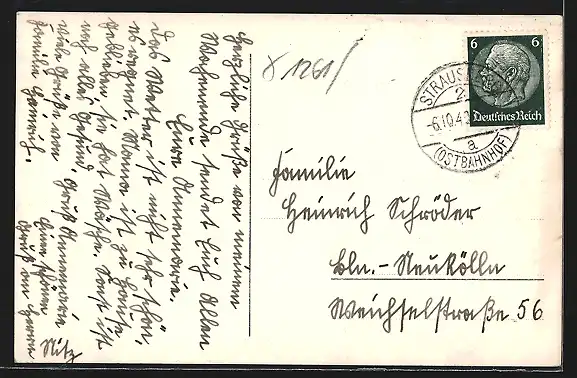 Herzliche Grüße von meinem
Wochenende sendet Euch Allen
Eure Annemarie.
Das Wetter ist nicht sehr schön,
es regnet. Mama ist zu Hause
geblieben, sie hat Wäsche. Sonst ist
noch alles gesund.
Viele Grüße von
Familie Heinrich.
Gruß Annemarie
Einen schönen
Gruß an Herrn
Nitz
X 1261/
6 6
Deutsches Reich
STRAUS
-6.10.4
a
(OSTBAHNHOF)
Familie
Heinrich Schröder
Bln.-Neukölln
Weichselstraße 56